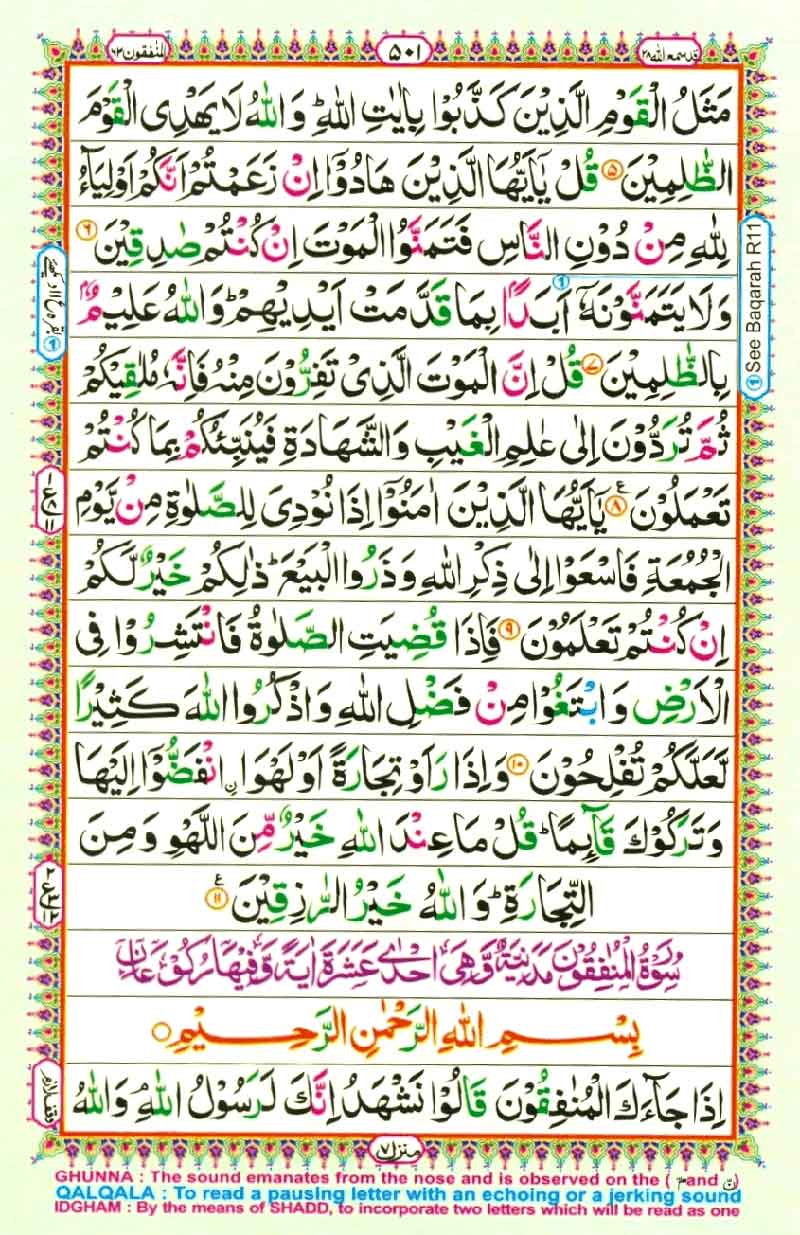 قد سمع الله ٢٨
٥٠١
المنٰفقون ٦٣
مَثَلُ الْقَوْمِ الَّذِيْنَ كَذَّبُوْا بِاٰيٰتِ اللّٰهِ ؕ وَ اللّٰهُ لَا يَهْدِى الْقَوْمَ
الظّٰلِمِيْنَ ۵ قُلْ يٰۤاَيُّهَا الَّذِيْنَ هَادُوْۤا اِنْ زَعَمْتُمْ اَنَّكُمْ اَوْلِيَآءُ
لِلّٰهِ مِنْ دُوْنِ النَّاسِ فَتَمَنَّوُا الْمَوْتَ اِنْ كُنْتُمْ صٰدِقِيْنَ ۶
وَلَا يَتَمَنَّوْنَهٗۤ اَبَدًۢا بِمَا قَدَّمَتْ اَيْدِيْهِمْ ؕ وَاللّٰهُ عَلِيْمٌۢ
بِالظّٰلِمِيْنَ ۷ قُلْ اِنَّ الْمَوْتَ الَّذِىْ تَفِرُّوْنَ مِنْهُ فَاِنَّهٗ مُلٰقِيْكُمْ
ثُمَّ تُرَدُّوْنَ اِلٰى عٰلِمِ الْغَيْبِ وَالشَّهَادَةِ فَيُنَبِّئُكُمْ بِمَا كُنْتُمْ
تَعْمَلُوْنَ ۸ ع يٰۤاَيُّهَا الَّذِيْنَ اٰمَنُوْۤا اِذَا نُوْدِىَ لِلصَّلٰوةِ مِنْ يَّوْمِ
الْجُمُعَةِ فَاسْعَوْا اِلٰى ذِكْرِ اللّٰهِ وَذَرُوا الْبَيْعَ ؕ ذٰلِكُمْ خَيْرٌ لَّكُمْ
اِنْ كُنْتُمْ تَعْلَمُوْنَ ۹ فَاِذَا قُضِيَتِ الصَّلٰوةُ فَانْتَشِرُوْا فِى
الْاَرْضِ وَابْتَغُوْا مِنْ فَضْلِ اللّٰهِ وَاذْكُرُوا اللّٰهَ كَثِيْرًا
لَّعَلَّكُمْ تُفْلِحُوْنَ ۱۰ وَاِذَا رَاَوْا تِجَارَةً اَوْ لَهْوَا ۨانْفَضُّوْۤا اِلَيْهَا
وَتَرَكُوْكَ قَآئِمًا ؕ قُلْ مَا عِنْدَ اللّٰهِ خَيْرٌ مِّنَ اللَّهْوِ وَمِنَ
التِّجَارَةِ ؕ وَاللّٰهُ خَيْرُ الرّٰزِقِيْنَ ۱۱ ع
سُوْرَةُ الْمُنٰفِقُوْنَ مَدَنِيَّةٌ وَّهِىَ اِحْدٰى عَشْرَةَ اٰيَةً وَّفِيْهَا رُكُوْعَانِ
بِسْمِ اللّٰهِ الرَّحْمٰنِ الرَّحِيْمِ
اِذَا جَآءَكَ الْمُنٰفِقُوْنَ قَالُوْا نَشْهَدُ اِنَّكَ لَرَسُوْلُ اللّٰهِ ۘ وَاللّٰهُ
① See Baqarah R11
وقف لازم
منزل ۷
GHUNNA : The sound emanates from the nose and is observed on the ( مّ and نّ )
QALQALA : To read a pausing letter with an echoing or a jerking sound
IDGHAM : By the means of SHADD, to incorporate two letters which will be read as one